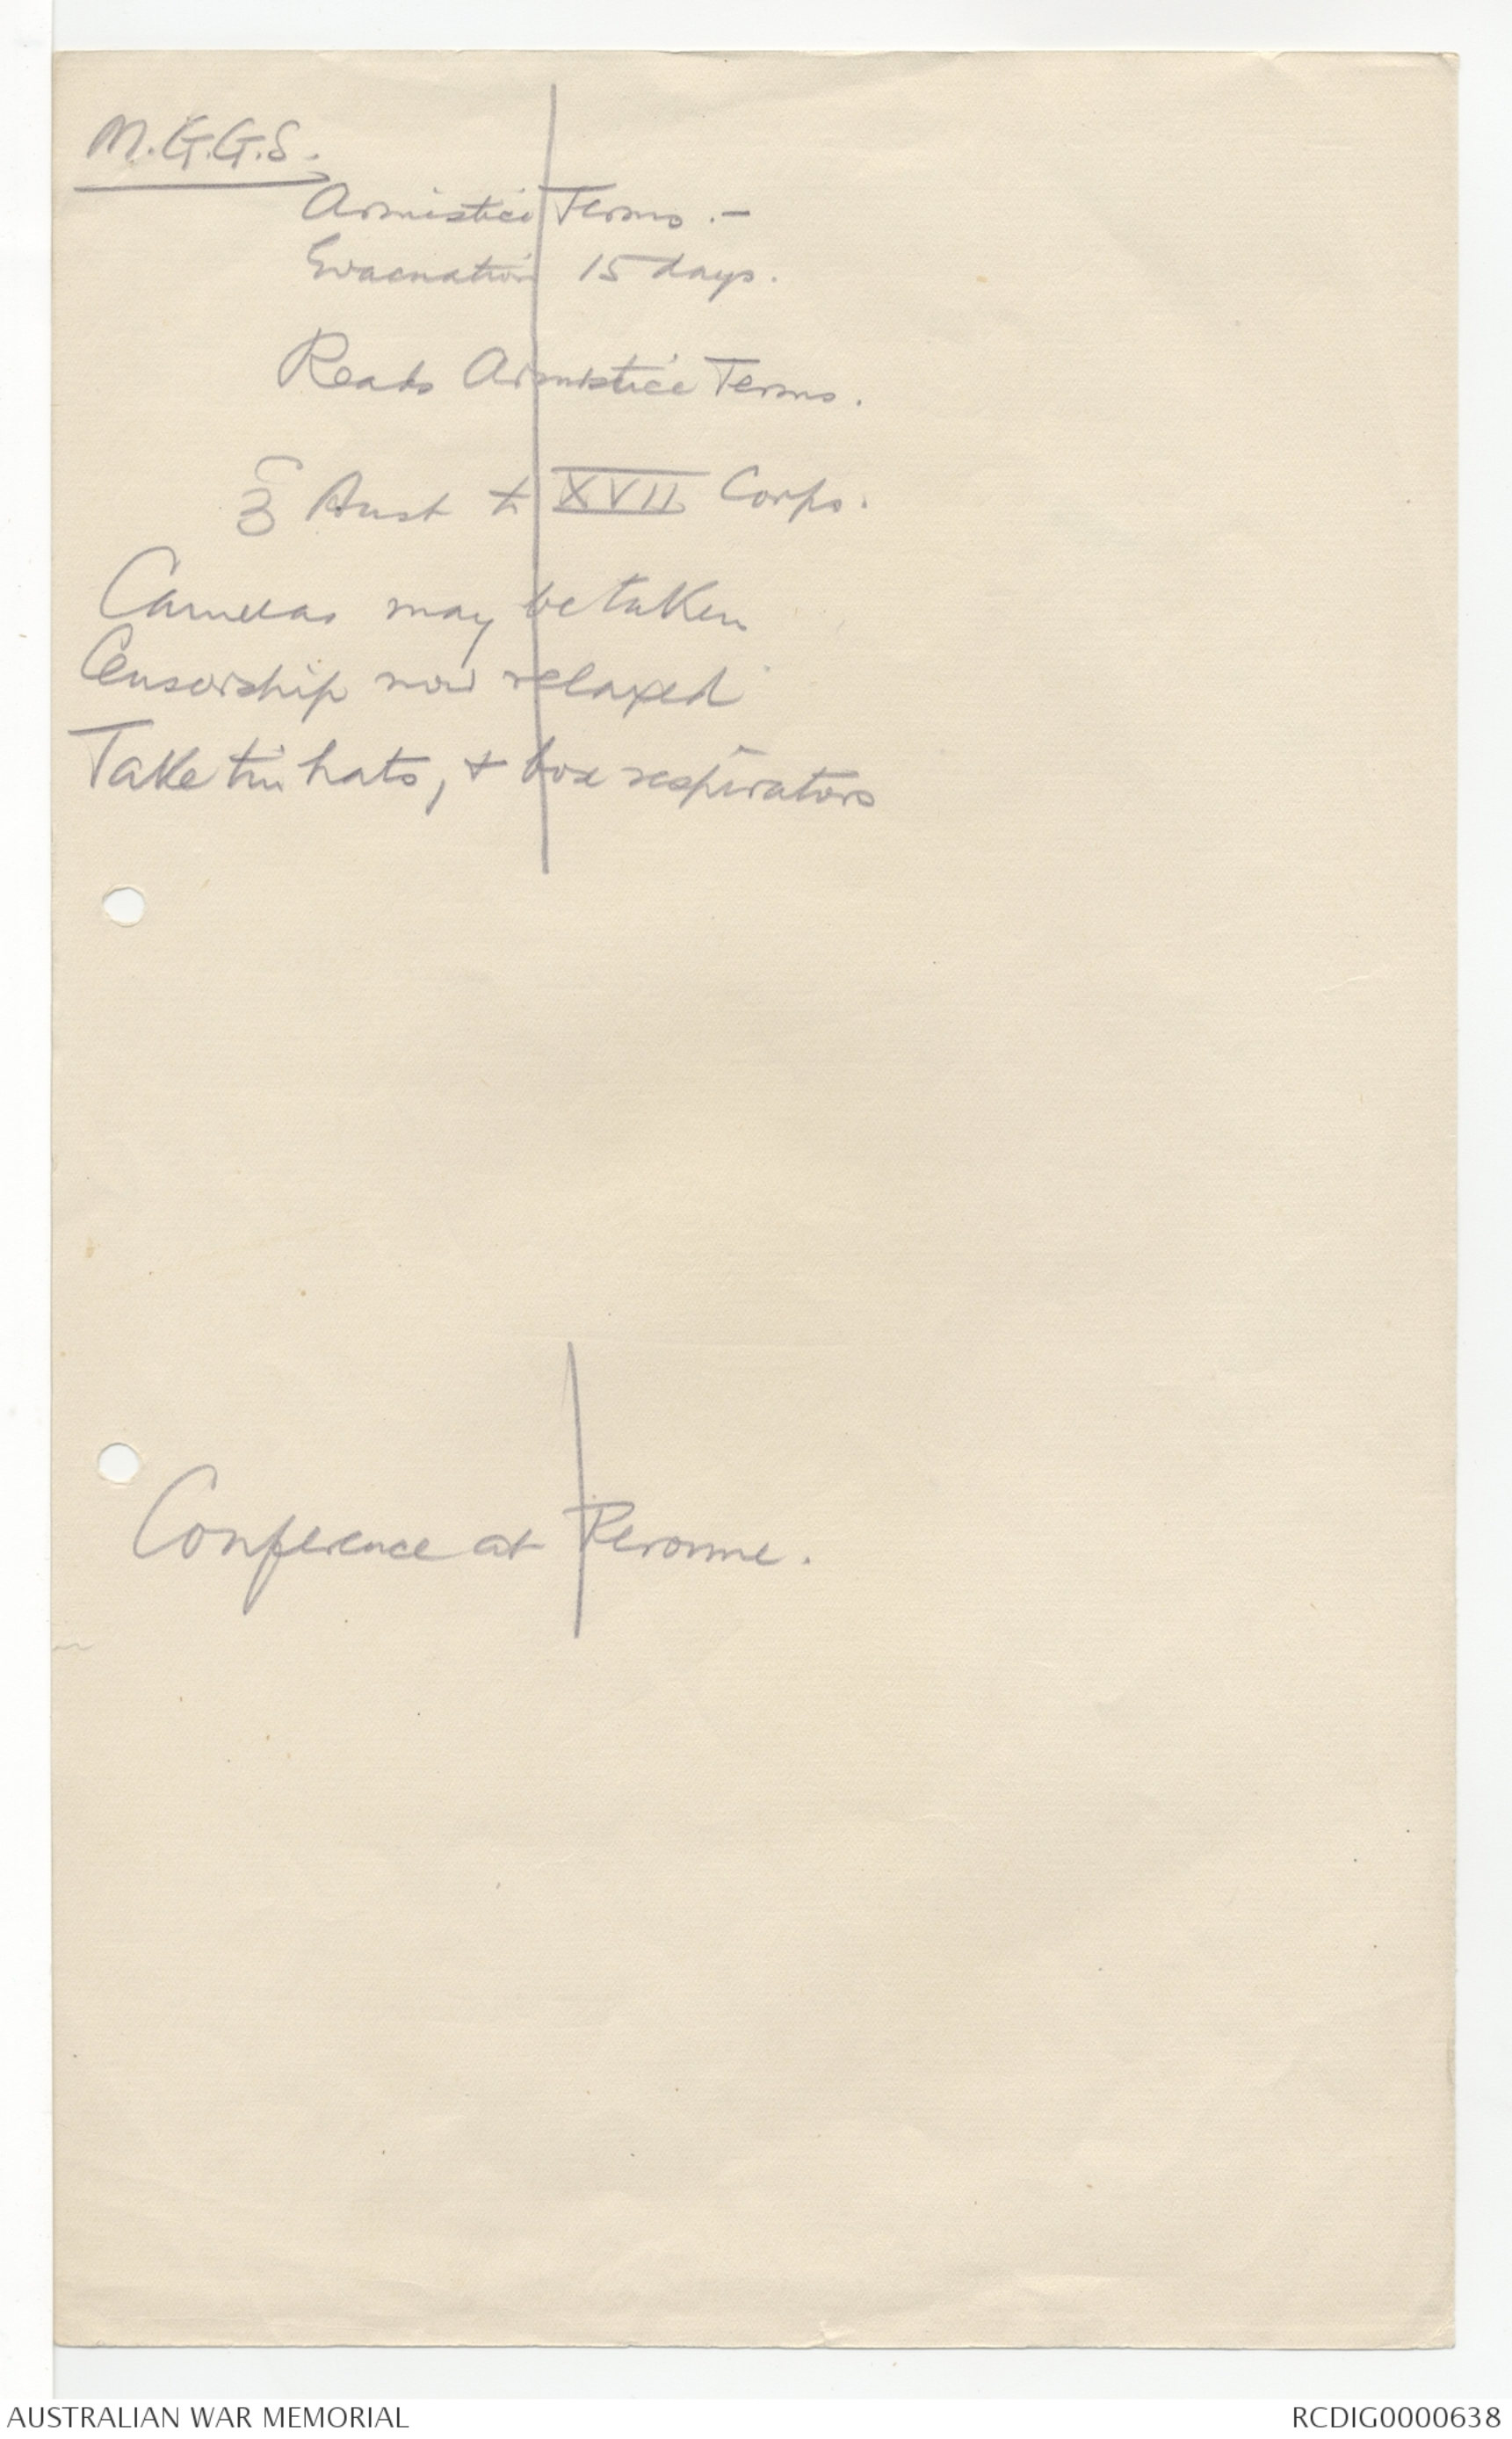 M.G.G.S.
Armistice Terms. -
Evacuation 15 days.
Reads Armistice Terms.
Aust to XVII Corps.
Cameras may be taken
Censorship now relaxed
Take tin hats, + box respirators
Conference at Peronne.
AUSTRALIAN WAR MEMORIAL
RCDIG0000638